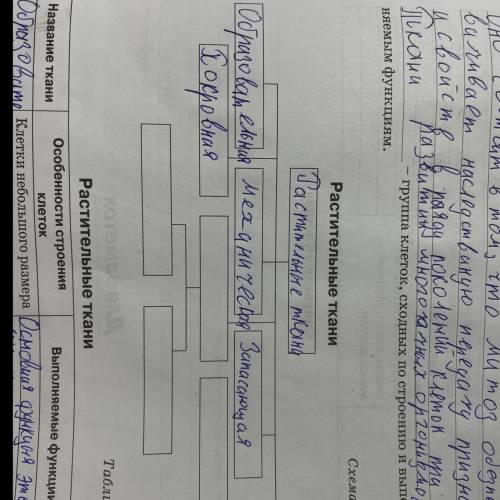 что митоз
вливает наследственную передачу призна
и свойств в ряду поколений клеток при
развитии многоклеточных
Ткани – группа клеток, сходных по строению и вып
няемым функциям.
Схема
Растительные ткани
Растительные ткани
Образовательная
Механическая
Запасающая
Покровная
Табли
Растительные ткани
Название ткани
Особенности строения клеток
Выполняемые функции
Образовате
Клетки небольшого размера
Основная функция эт